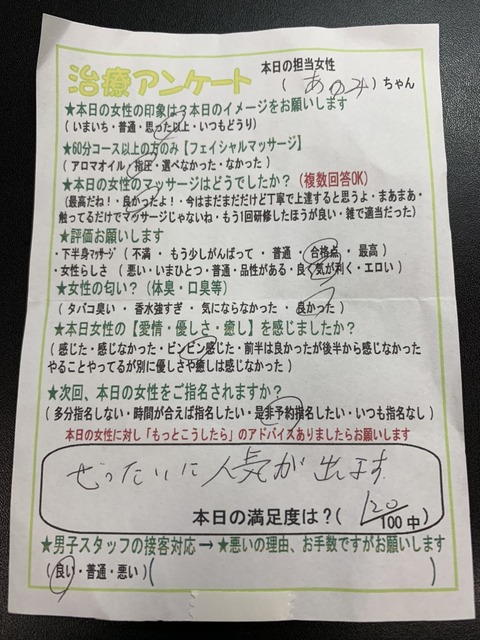 治療アンケート
本日の担当女性
( あゆみ )ちゃん
★本日の女性の印象は?本日のイメージをお願いします
(いまいち・普通・思った以上・いつもどうり)
★60分コース以上の方のみ【フェイシャルマッサージ】
(アロマオイル・指圧・選べなかった・なかった)
★本日の女性のマッサージはどうでしたか?(複数回答OK)
(最高だね!・良かったよ!・今はまだまだだけど丁寧で上達すると思うよ・まあまあ・
触ってるだけでマッサージじゃないね・もう1回研修したほうが良い・雑で適当だった)
★評価お願いします
・下半身マッサージ(不満・もう少しがんばって・普通・合格点・最高)
・女性らしさ(悪い・いまひとつ・普通・品性がある・良く気が利く・エロい)
★女性の匂い?(体臭・口臭等)
(タバコ臭い・香水強すぎ・気にならなかった・良かった)
★本日女性の【愛情・優しさ・癒し】を感じましたか?
(感じた・感じなかった・ビンビン感じた・前半は良かったが後半から感じなかった
やることやってるが別に優しさや癒しは感じなかった)
★次回、本日の女性をご指名されますか?
(多分指名しない・時間が合えば指名したい・是非予約指名したい・いつも指名なし)
本日の女性に対し「もっとこうしたら」のアドバイスありましたらお願いします
ぜったいに人気が出ます
本日の満足度は?( 120/100中)
★男子スタッフの接客対応→★悪いの理由、お手数ですがお願いします
(良い・普通・悪い)( )